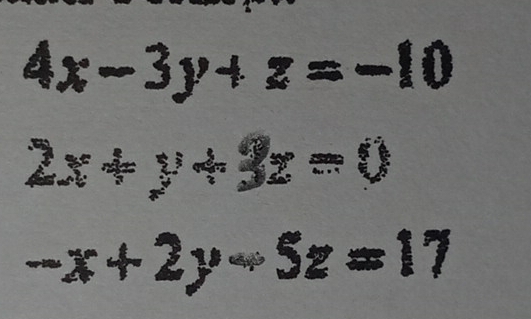 4x-3y+z=-10
2x+y+3z=0
-x+2y-5z=17